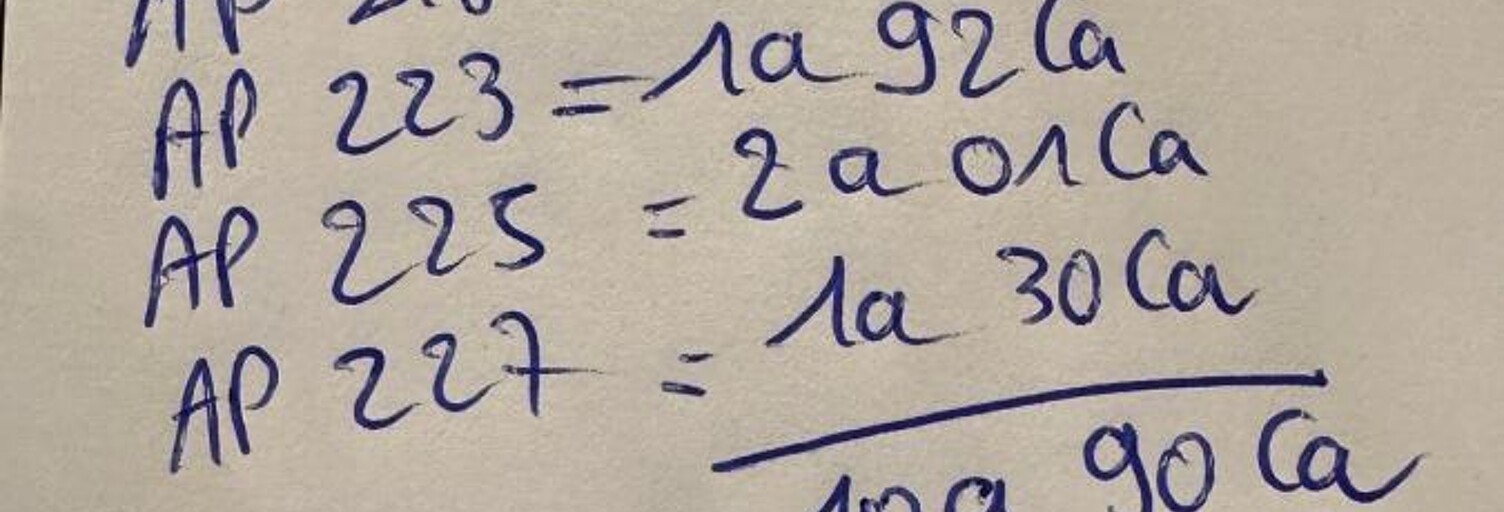 AP
AP 223 = 1a 92 Ca
AP 225 = 2a 01 Ca
AP 227 = 1a 30 Ca
10a 90 Ca